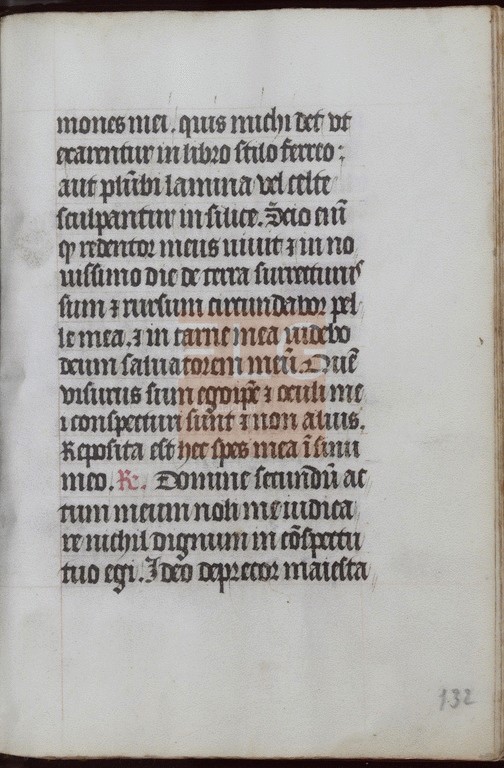 mones mei. quis michi det vt
exarentur in libro stilo ferreo:
aut plūbi lamina vel celte
sculpantur in silice. Scio enī
qꝫ redentor meus uiuit ⁊ in no
uissimo die de terra surrecturus
sum ⁊ rursum circundabor pel
le mea. ⁊ in carne mea uidebo
deum saluatorem meū. Quē
visurus sum ego ip̄e ⁊ oculi me
i conspecturi sūnt ⁊ non alius.
Reposita est hec spes mea ī sinu
meo. R̃. Domine secundū ac
tum meum noli me iudica
re nichil dignum in cōspectu
tuo egi. Ideo deprecor maiesta
132